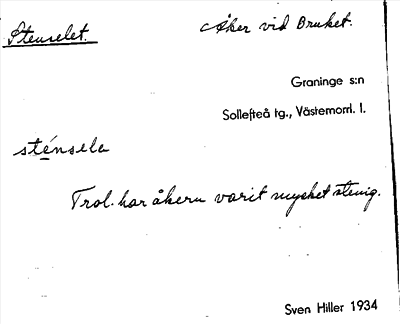 Stenselet.
Åker vid Bruket.
Graninge s:n
Sollefteå tg., Västernorrl. l.
sténsela
Trol. har åkern varit mycket stenig.
Sven Hiller 1934